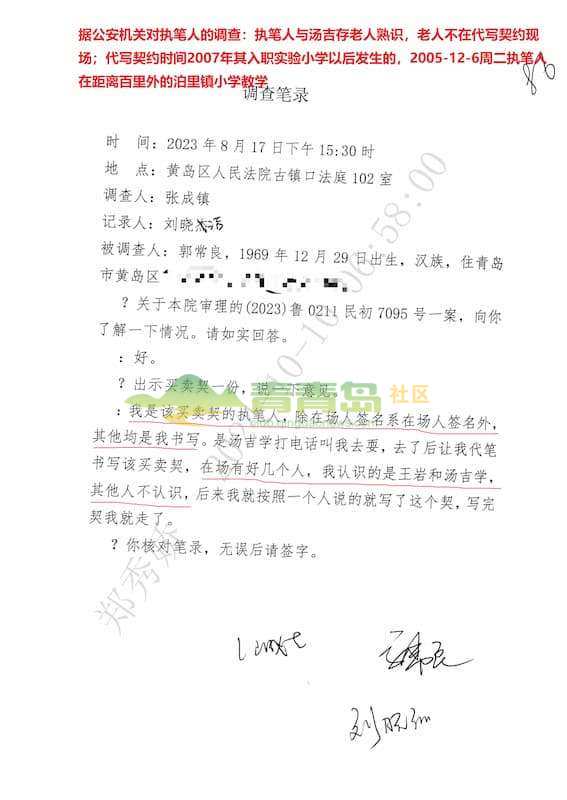 据公安机关对执笔人的调查：执笔人与汤吉存老人熟识，老人不在代写契约现
场；代写契约时间2007年其入职实验小学以后发生的，2005-12-6周二执笔人
在距离百里外的泊里镇小学教学
86
调查笔录
时 间：2023年8月17日下午15:30时
地 点：黄岛区人民法院古镇口法庭102室
调查人：张成镇
记录人：刘晓洁
被调查人：郭常良，1969年12月29日出生，汉族，住青岛
市黄岛区
？关于本院审理的(2023)鲁0211民初7095号一案，向你
了解一下情况。请如实回答。
：好。
？出示买卖契一份，说一下意见。
：我是该买卖契的执笔人，除在场人签名系在场人签名外，
其他均是我书写。是汤吉学打电话叫我去耍，去了后让我代笔
书写该买卖契，在场有好几个人，我认识的是王岩和汤吉学，
其他人不认识，后来我就按照一个人说的就写了这个契，写完
契我就走了。
？你核对笔录，无误后请签字。
青青岛社区
郑秀娇